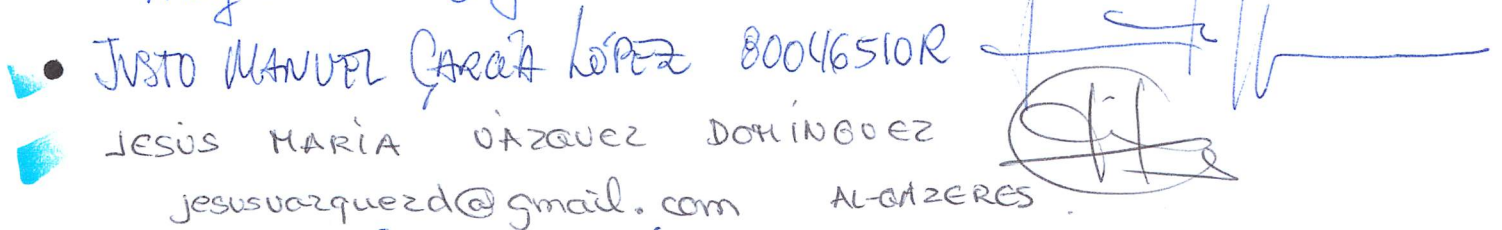 JUSTO MANUEL GARCÍA LÓPEZ 80046510R
JESÚS MARÍA VÁZQUEZ DOMÍNGUEZ
jesusvazquezd@gmail.com AL-QÁZERES